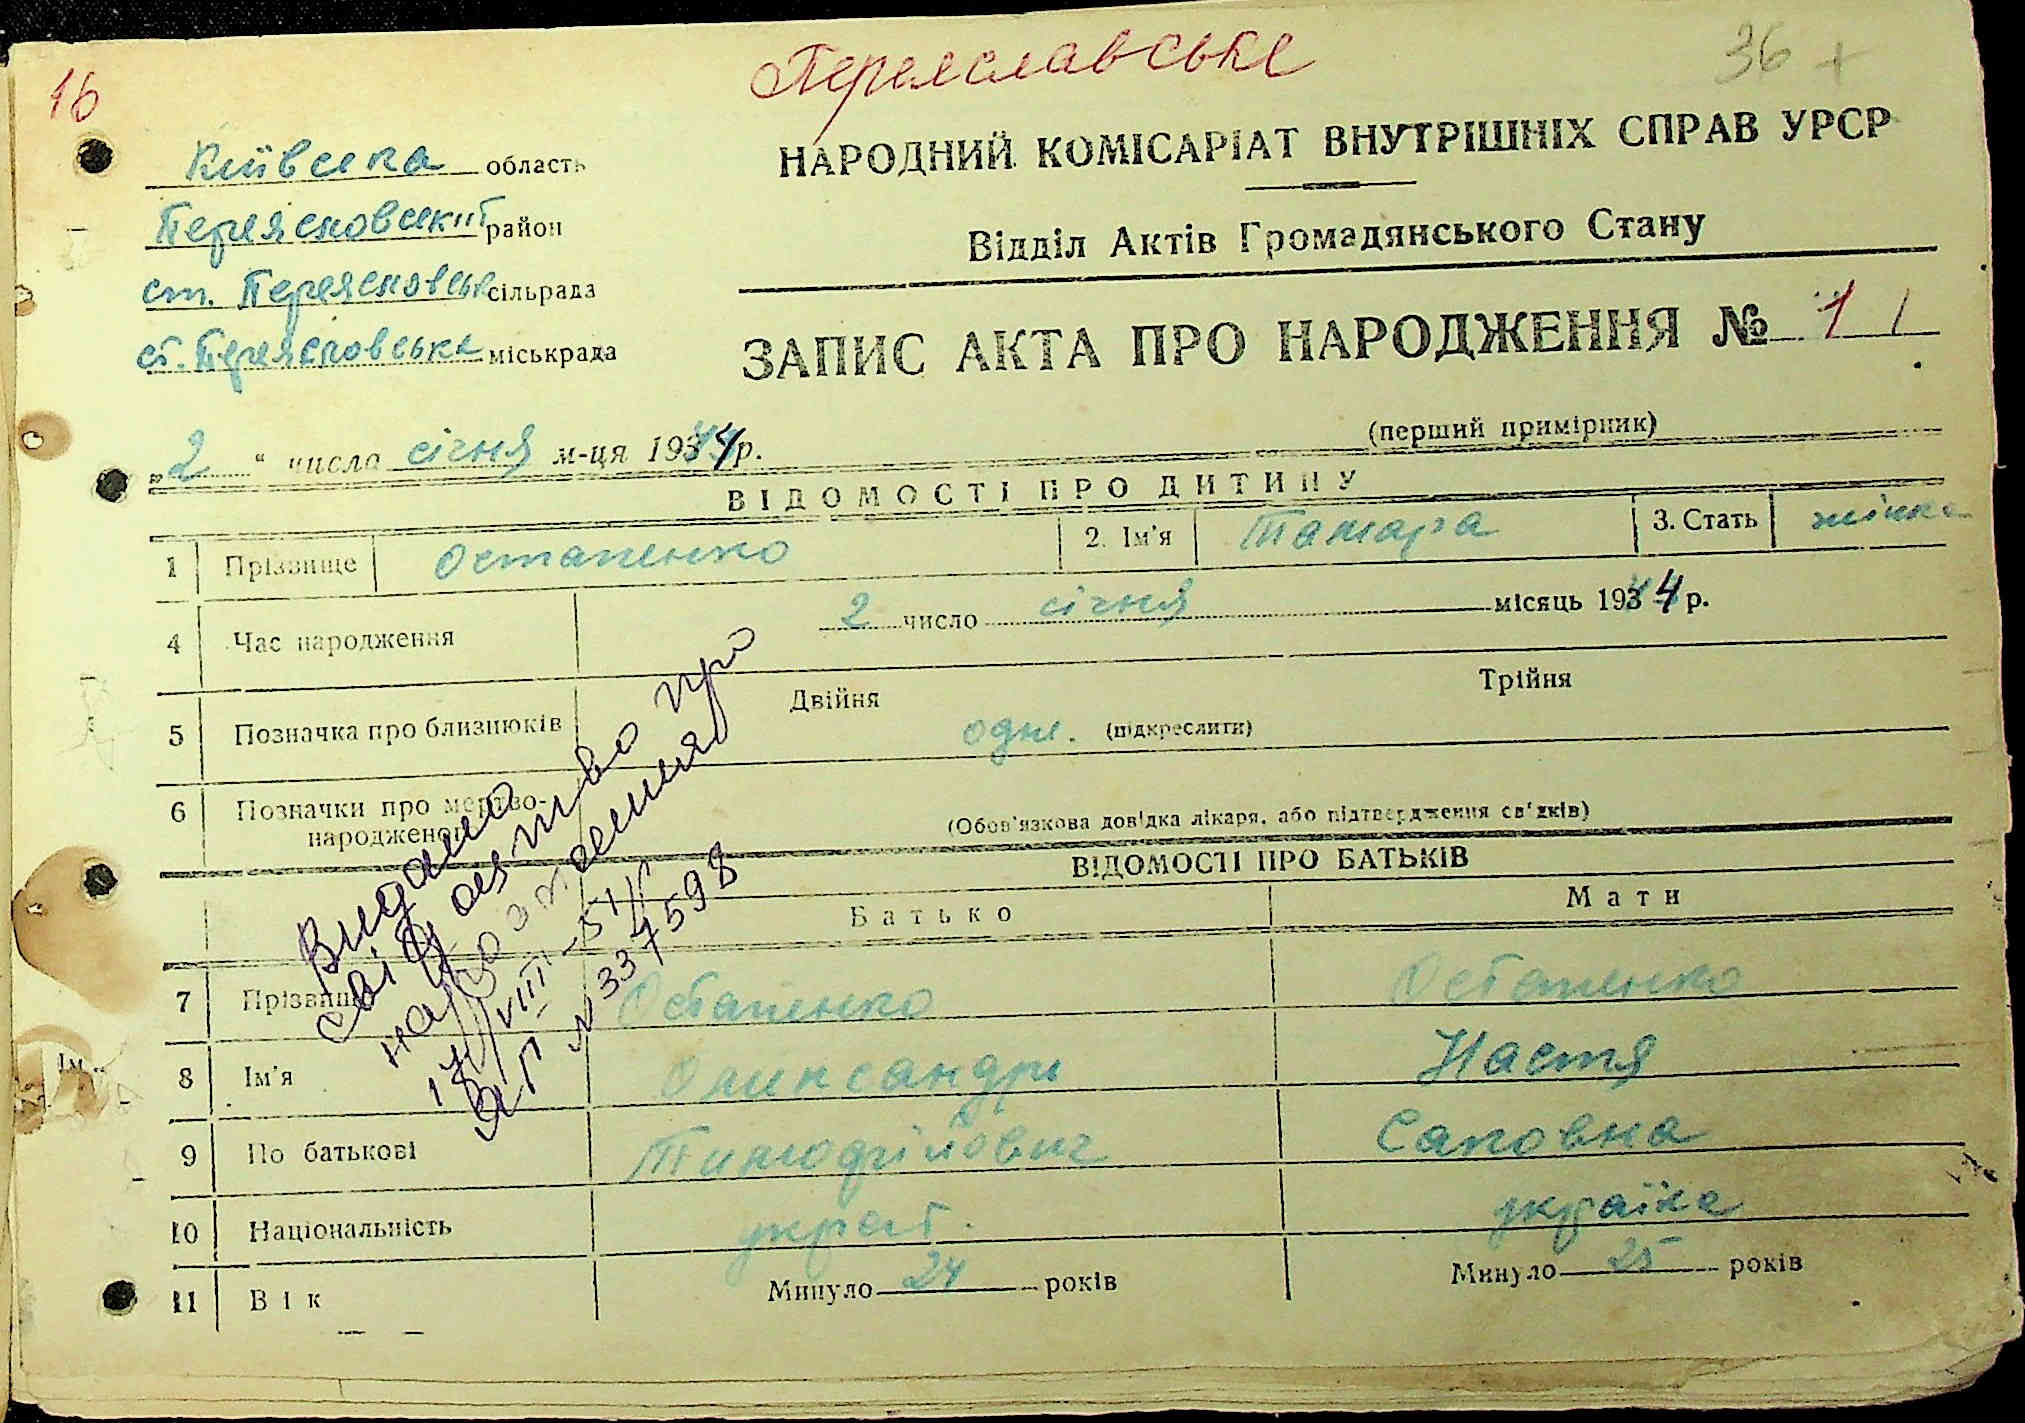 16
Переяславське
36 +
Київська область
НАРОДНИЙ КОМІСАРІАТ ВНУТРІШНІХ СПРАВ УРСР
район
Відділ Актів Громадянського Стану
ст. сільрада
ст. міськрада
ЗАПИС АКТА ПРО НАРОДЖЕННЯ № 1
(перший примірник)
„2 “ числа січня м-ця 1944 р.
ВІДОМОСТІ ПРО ДИТИНУ
1 Прізвище Остапенко 2. Ім'я Тамара 3. Стать жінка
4 Час народження 2 число січня місяць 1944 р.
5 Позначка про близнюків Двійня одне. (підкреслити) Трійня
6 Позначки про мертво-
народженого (Обов'язкова довідка лікаря, або підтвердження свідків)
ВІДОМОСТІ ПРО БАТЬКІВ
Батько Мати
7 Прізвище Остапенко Остапенко
8 Ім'я Олександр Настя
9 По батькові Тимофійович Саповна
10 Національність украї. українка
11 Вік Минуло 24 років Минуло 25 років
Видано
свідоцтво про
народження
17/VIII-51 р
ЯП № 337598